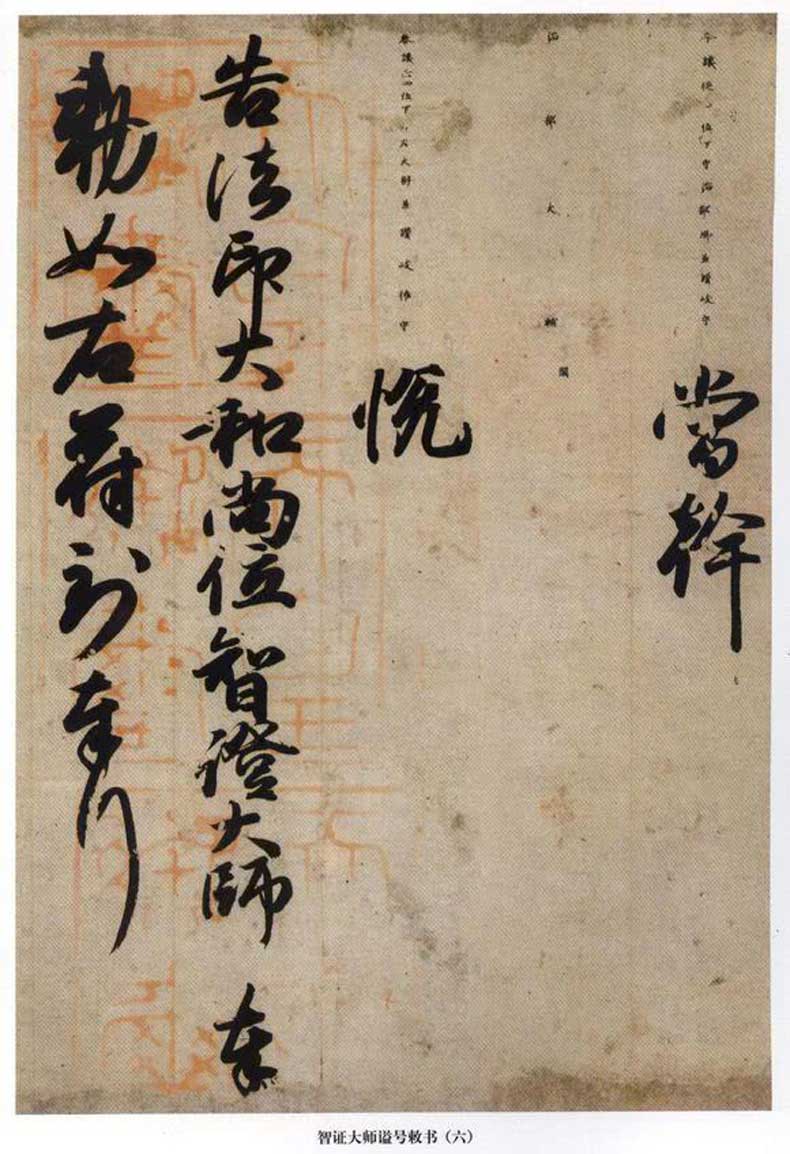 參議從四位下守治部卿兼讚岐守 當幹
治部大輔 闕
參議四位下大辨兼讚岐權守 悅
告法印大和尚位智證大師 奉
勅如右符到奉行
智证大师谥号敕书（六）